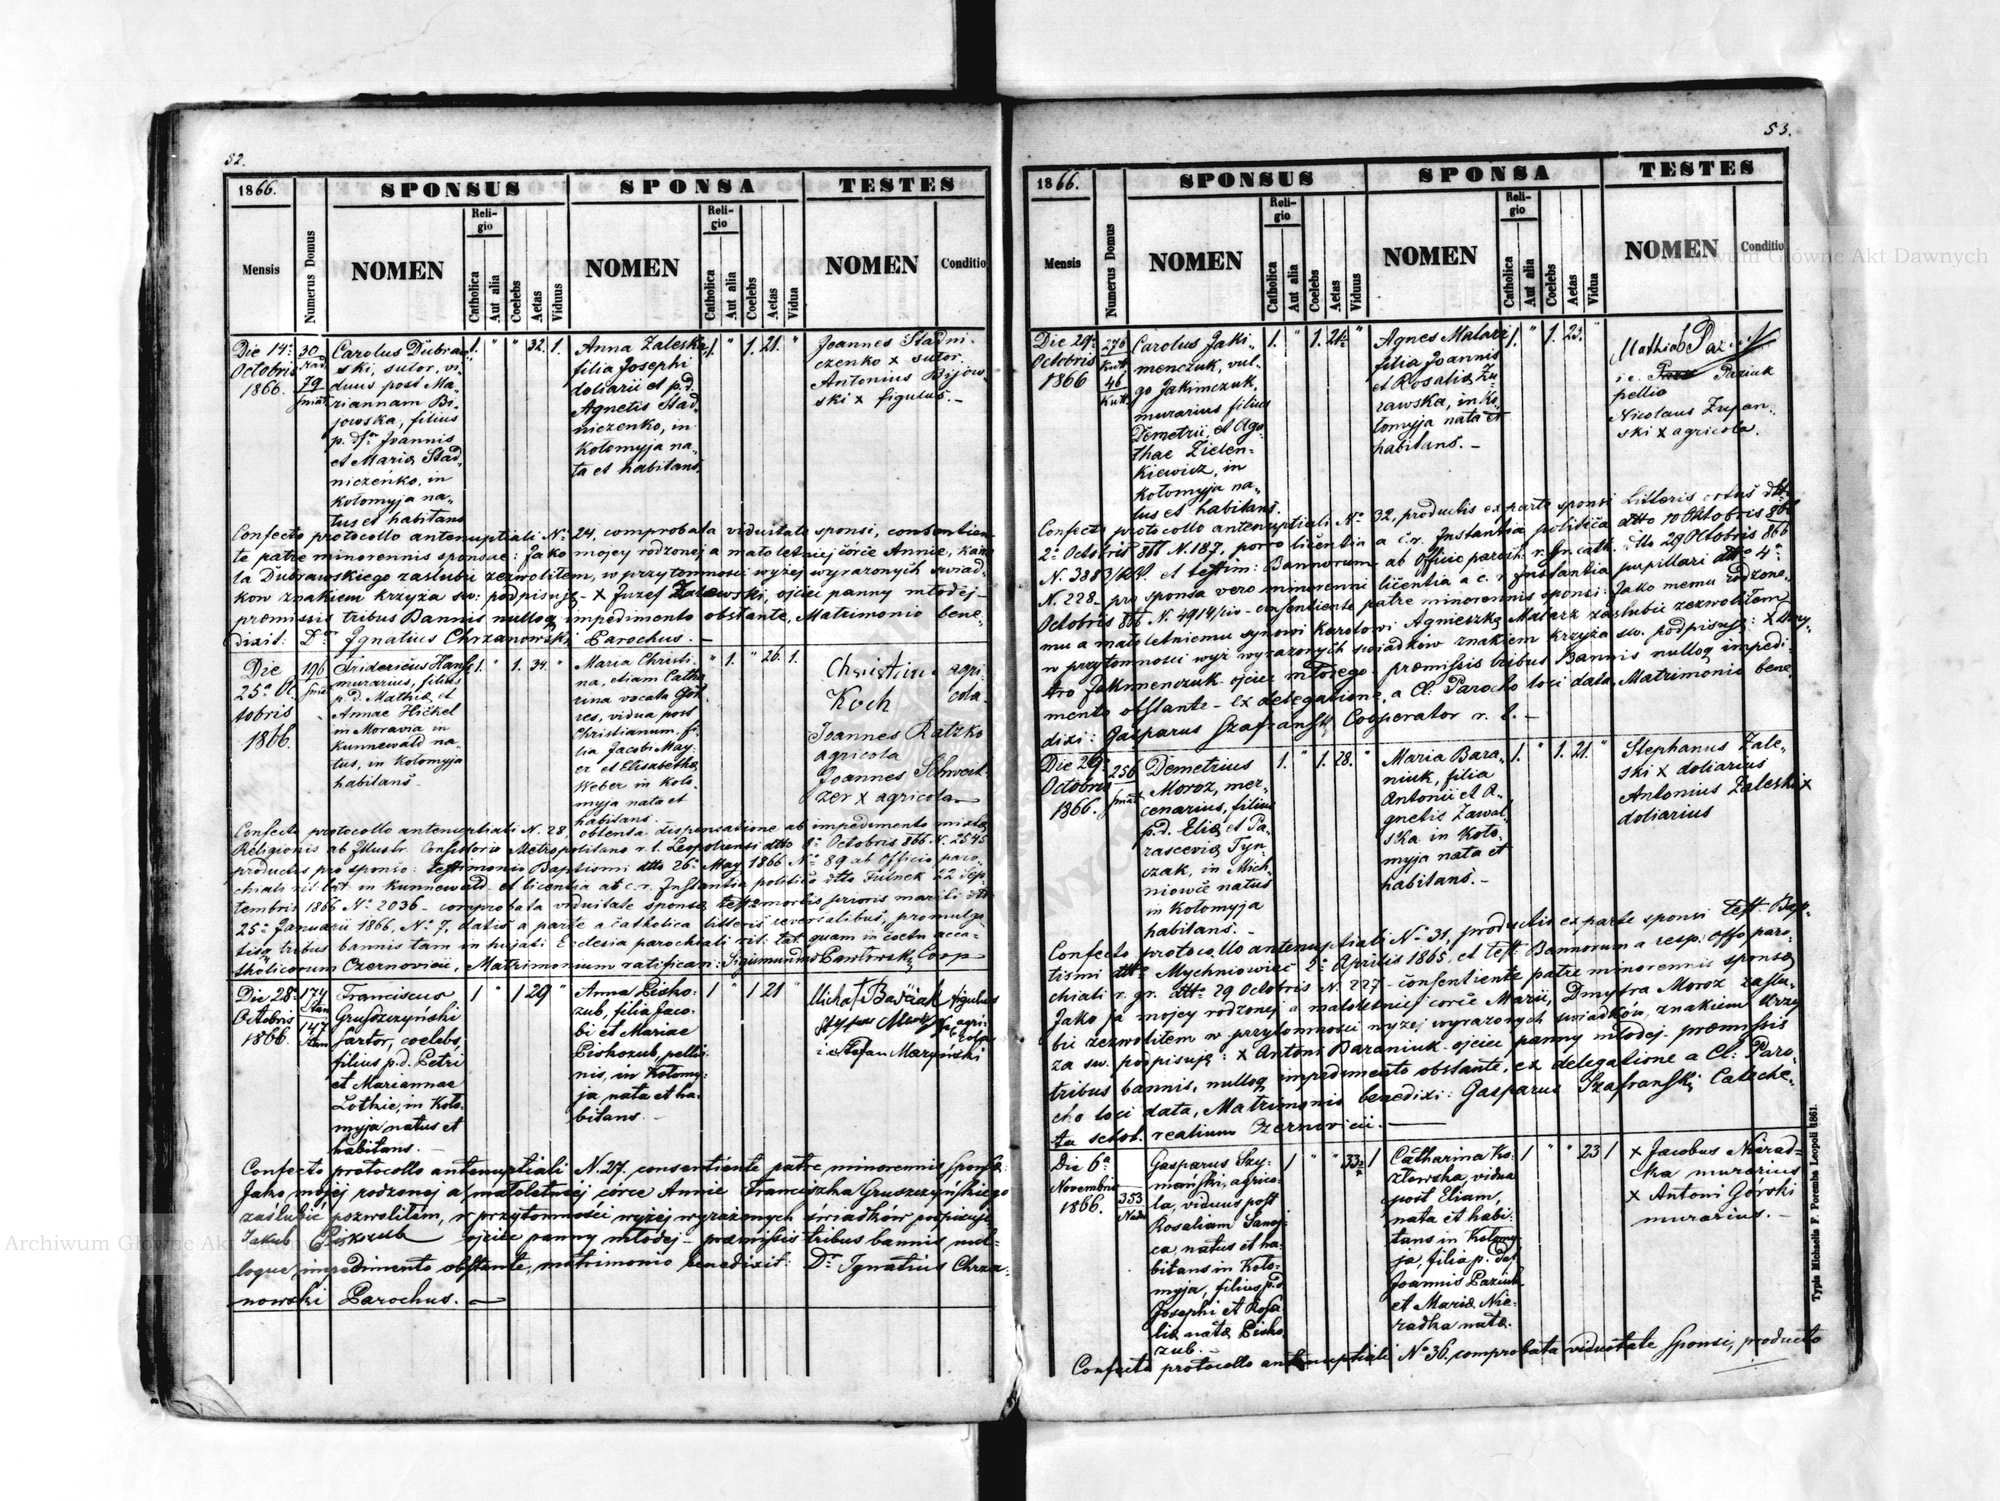 52.
1866.
SPONSUS
SPONSA
TESTES
Mensis
Numerus Domus
NOMEN
Religio
Catholica
Aut alia
Coelebs
Aetas
Viduus
NOMEN
Religio
Catholica
Aut alia
Coelebs
Aetas
Vidua
NOMEN
Conditio
Die 14ª
Octobris
1866.
30
79
Carolus Dubraw
ski, sutor, vi-
duus post Ma-
riannam Bi-
jowska, filius
p. d. Joannis
et Mariæ Stad-
niczenko, in
Kołomyja na-
tus et habitans
1. " " 32. 1.
Anna Zaleska,
filia Josephi
doliarii et p. d.
Agnetis Stad-
niczenko, in
Kołomyja na-
ta et habitans.
1. " 1. 21. "
Joannes Stadni-
czenko x sutor.
Antonius Bijow-
ski x figulus. -
Confecto protocollo antenuptiali Nº 24, comprobata viduitate sponsi, consentien-
te patre minorennis sponsae: Jako mojej rodzonej a małoletniej córce Annie, Karo
la Dubrawskiego zaślubić zezwoliłem, w przytomności wyżej wyrażonych świad-
ków znakiem krzyża św: podpisuję - x Juzef Zalewski, ojciec panny młodej -
præmissis tribus Bannis nulloq impedimento obstante, Matrimonio bene-
dixit: Dr Ignatius Chrzanowski Parochus. -
Die
25ª Oc
tobris
1866.
196
Fridericus Hans,
murarius, filius
p. d. Mathiæ et
Annae Hickel
in Moravia in
Kunnewald na-
tus, in Kołomyja
habitans -
1. " 1. 34. "
Maria Christi-
na, etiam Catha
rina vocata Gör
res, vidua post
Christianum, fi-
lia Jacobi May-
er et Elisabethæ
Weber in Koło-
myja nata et
habitans. -
" 1. " 26. 1.
Christian agri-
Koch cola -
Joannes Ratzko
agricola
Joannes Schweit
zer x agricola -
Confecto protocollo antenuptiali N. 28, obtenta dispensatione ab impedimento mixtæ
Religionis ab Illustr. Consistorio Metropolitano r. l. Leopoliensi dtto 1ª Octobris 866 N. 2545
productis pro sponso: testimonio Baptismi dtto 26ª May 1866 Nº 89 ab Officio paro-
chiali rit. lat. in Kunnewald, et licentia ab c. r. Instantia politica dtto Fulnek 22 Sep
tembris 1866 Nº 2036 - comprobata viduitate sponsæ test. mortis prioris mariti dtto
25ª Januarii 1866, Nº 7, datis a parte acatholica litteris reversalibus, promulga
tisq tribus bannis tam in hujati Ecclesia parochiali rit. lat. quam in coetu aca-
tholicorum Czernovicii, Matrimonium ratificavi: Sigismundus Pawłowski Coop
Die 28ª
Octobris
1866.
174
147
Franciscus
Gruszczyński
sartor, coelebs,
filius p. d. Petri
et Mariannae
Lothie, in Koło-
myja natus et
habitans. -
1 " 1 29 "
Anna Pisko-
zub, filia Jaco-
bi et Mariae
Piskozub, pellio
nis, in Kołomy-
ja, nata et ha-
bitans. -
1 " 1 21 "
Michał Baściak figulus
i. e. Stefan Maryński
agri-
cola
Confecto protocollo antenuptiali N. 27. consentiente patre minorennis sponsæ:
Jako mojej rodzonej a małoletniej córce Annie Franciszka Gruszczyńskiego
zaślubić pozwoliłem, w przytomności wyżej wyrażonych świadków podpisuję
Jakub Piskozub ojciec panny młodej - præmissis tribus bannis nul-
loque impedimento obstante, matrimonio benedixit: Dr Ignatius Chrza-
nowski Parochus. -
53.
1866.
SPONSUS
SPONSA
TESTES
Mensis
Numerus Domus
NOMEN
Religio
Catholica
Aut alia
Coelebs
Aetas
Viduus
NOMEN
Religio
Catholica
Aut alia
Coelebs
Aetas
Vidua
NOMEN
Conditio
Die 29ª
Octobris
1866
276
Kutt.
46
Kutt.
Carolus Jaki-
menczuk, vul-
go Jakimczuk,
murarius filius
Demetrii, et Aga-
thae Zielen-
kiewicz, in
Kołomyja na-
tus et habitans.
1. " 1. 21½ "
Agnes Malarz
filia Joannis
et Rosaliæ Zu-
rawska, in Ko-
łomyja nata et
habitans. -
1. " 1. 23. "
Mathias Paziuk
i. e. Paziuk
pellio
Nicolaus Zupan-
ski x agricola.
Confecto protocollo antenuptiali Nº 32, productis ex parte sponsi Litteris ortus dtto
2ª Octobris 866 N. 187, porro licentia a c. r. Instantia politica dtto 10 Oktobris 866
N. 3883/ et testim: Bannorum ab Officio paroch. r. gr. cath. dtto 29 Octobris 866
N. 228 - pro sponsa vero minorenni licentia a c. r. Instantia pupillari dtto 4ª
Octobris 866 N. 4914/civ - consentiente patre minorennis sponsi: Jako memu rodzone-
mu a małoletniemu synowi Karolowi Agnieszkę Malarz zaślubić zezwoliłem
w przytomności wyż wyrażonych świadków znakiem krzyża św. podpisuję: x Dmy-
tro Jakimenczuk ojciec młodego præmissis tribus Bannis nulloq impedi-
mento obstante - Ex delegatione a Cl: Parocho loci data, Matrimonio bene
dixi: Gasparus Szafrański Cooperator r. l. -
Die 29ª
Octobris
1866.
256
Demetrius
Moroz, mer-
cenarius, filius
p. d. Eliæ et Pa-
rasceviæ Tyn-
czak, in Mich-
niowce natus
in Kołomyja
habitans. -
1. " 1. 28. "
Maria Bara-
niuk, filia
Antonii et A-
gnetis Zawal-
ska in Koło-
myja nata et
habitans. -
1. " 1. 21. "
Stephanus Zale-
ski x doliarius
Antonius Zaleski x
doliarius
Confecto protocollo antenuptiali Nº 31, productis ex parte sponsi test. Bap-
tismi dtto Mychniowiec 2ª Aprilis 1865, et test. Bannorum a resp: offo paro-
chiali r. gr. dtto 29 Octobris N. 227 - consentiente patre minorennis sponsæ
Jako ja mojej rodzonej a małoletniej córce Marii, Dmytra Moroz zaślu-
bić zezwoliłem w przytomności wyżej wyrażonych świadków, znakiem krzy
ża św. podpisuję: x Antoni Baraniuk ojciec panny młodej - præmissis
tribus bannis, nulloq impedimento obstante, ex delegatione a Cl: Paro-
cho loci data, Matrimonio benedixi: Gasparus Szafrański Cateche-
ta schol. realium Czernovicii. -
Die 6ª
Novembris
1866.
353
Gasparus Szy-
mański, agrico-
la, viduus post
Rosaliam Sanoj-
ca, natus et ha-
bitans in Koło-
myja, filius p. d.
Josephi et Rosa
liæ natæ Pisko
zub. -
1 " " 33½ 1
Catharina Ko-
złowska, vidua
post Eliam,
nata et habi-
tans in Kołomy-
ja, filia p. def.
Joannis Paziuk
et Mariæ Nie-
radka natæ.
1 " " 23 1
x Jacobus Nierad-
ka murarius
x Antoni Górski
murarius. -
Confecto protocollo antenuptiali Nº 36. comprobata viduitate Sponsi, producto
Typis Michaelis F. Poremba Leopoli 1861.
Archiwum Główne Akt Dawnych
Archiwum Główne Akt Dawnych